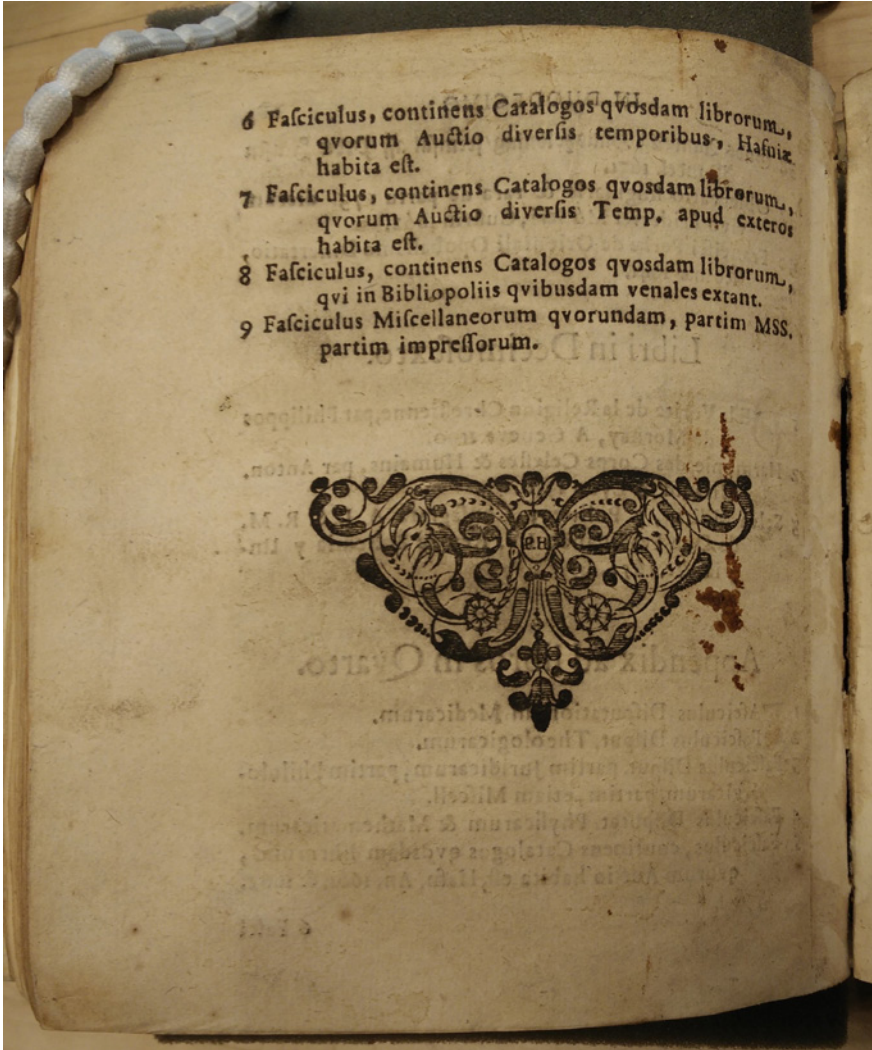 6 Faſciculus, continens Catalogos qvosdam librorum,
qvorum Auctio diverſis temporibus, Hafniæ
habita eſt.
7 Faſciculus, continens Catalogos qvosdam librorum,
qvorum Auctio diverſis Temp. apud exteros
habita eſt.
8 Faſciculus, continens Catalogos qvosdam librorum,
qvi in Bibliopoliis qvibusdam venales extant.
9 Faſciculus Miſcellaneorum qvorundam, partim MSS.
partim impreſſorum.
P.H